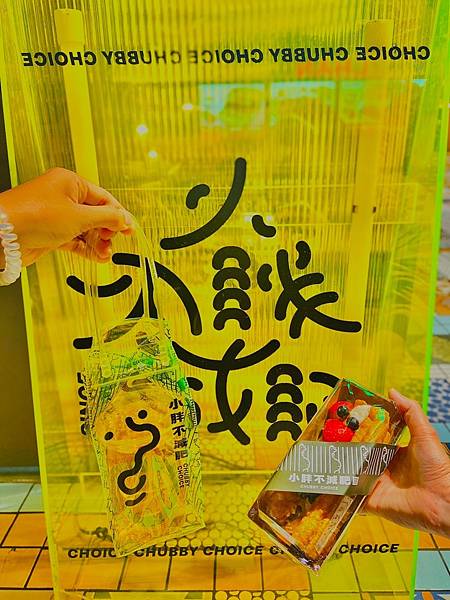 CHOICE CHUBBY CHOICE CHUBBY CHOICE
小胖不減肥
CHUBBY
CHOICE
小胖不減肥
CHUBBY CHOICE
SINCE
CHOICE CHUBBY CHOICE CHOICE